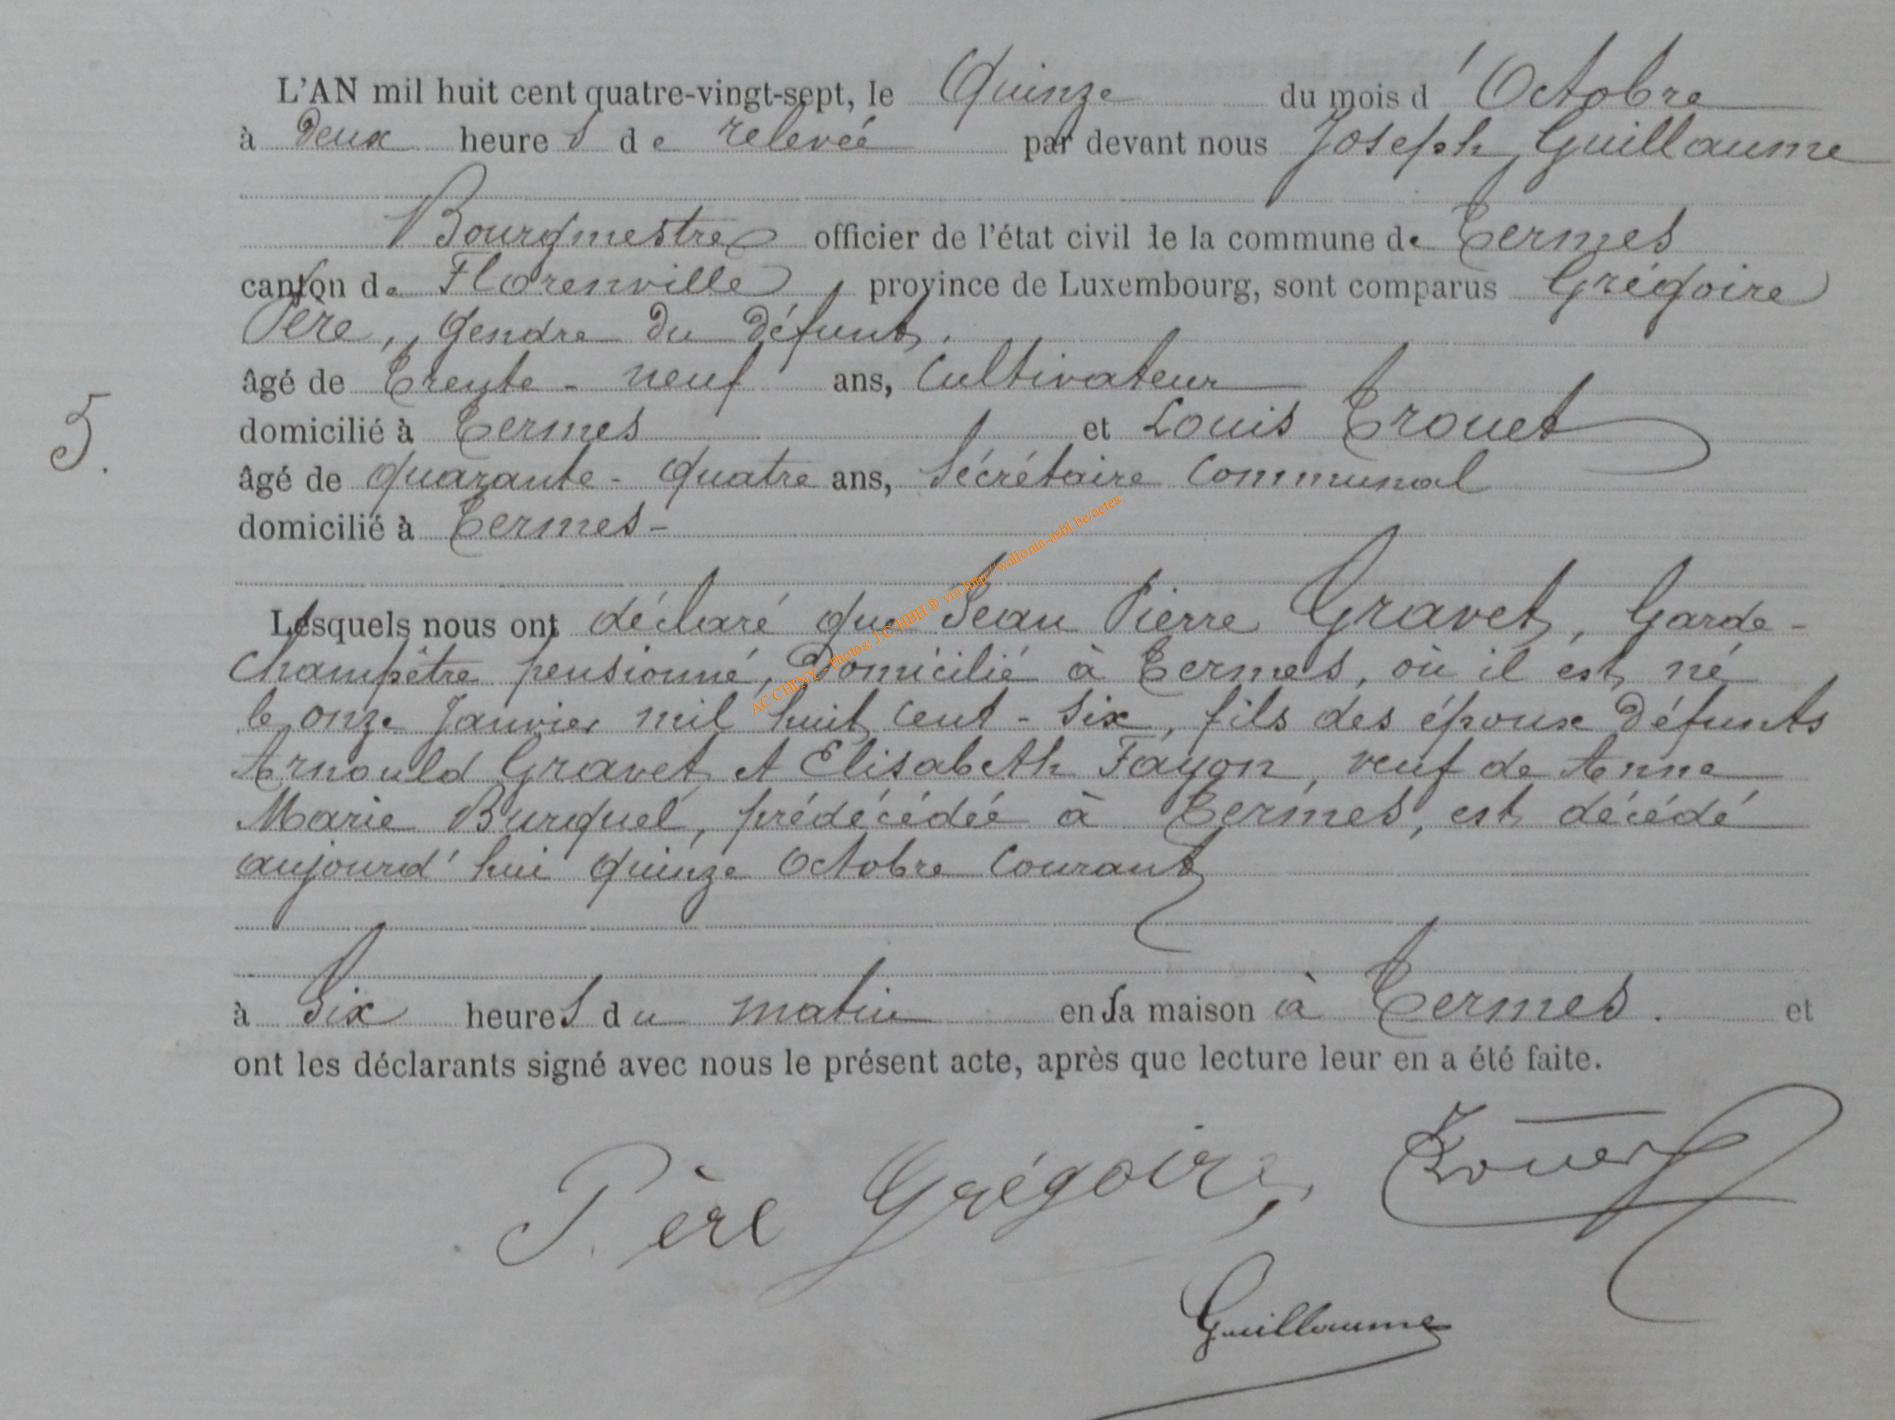 L'AN mil huit cent quatre-vingt-sept, le Quinze du mois d'Octobre
à deux heures de relevée par devant nous Joseph Guillaume
Bourgmestre officier de l'état civil de la commune de Termes
canton de Florenville province de Luxembourg, sont comparus Grégoire
Père, gendre du défunt,
âgé de Trente-neuf ans, Cultivateur
domicilié à Termes et Louis Trouet
5.
âgé de quarante-quatre ans, Sécrétaire Communal
domicilié à Termes-
Lesquels nous ont déclaré que Jean Pierre Gravet, Garde-
Champêtre pensionné, Domicilié à Termes, où il est né
le onze Janvier mil huit cent-six, fils des époux défunts
Arnould Gravet et Elisabeth Fayon, veuf de Anne
Marie Burquel, prédécédée à Termes, est décédé
aujourd'hui quinze Octobre Courant
à Six heures du matin en sa maison à Termes. et
ont les déclarants signé avec nous le présent acte, après que lecture leur en a été faite.
Père Grégoire, Trouet
Guillaume
AC CHINY - Photos: J-C HBH ® via http://wallonia-asbl.be/actes